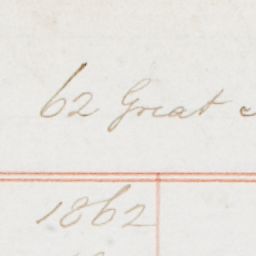 62 Great
1862